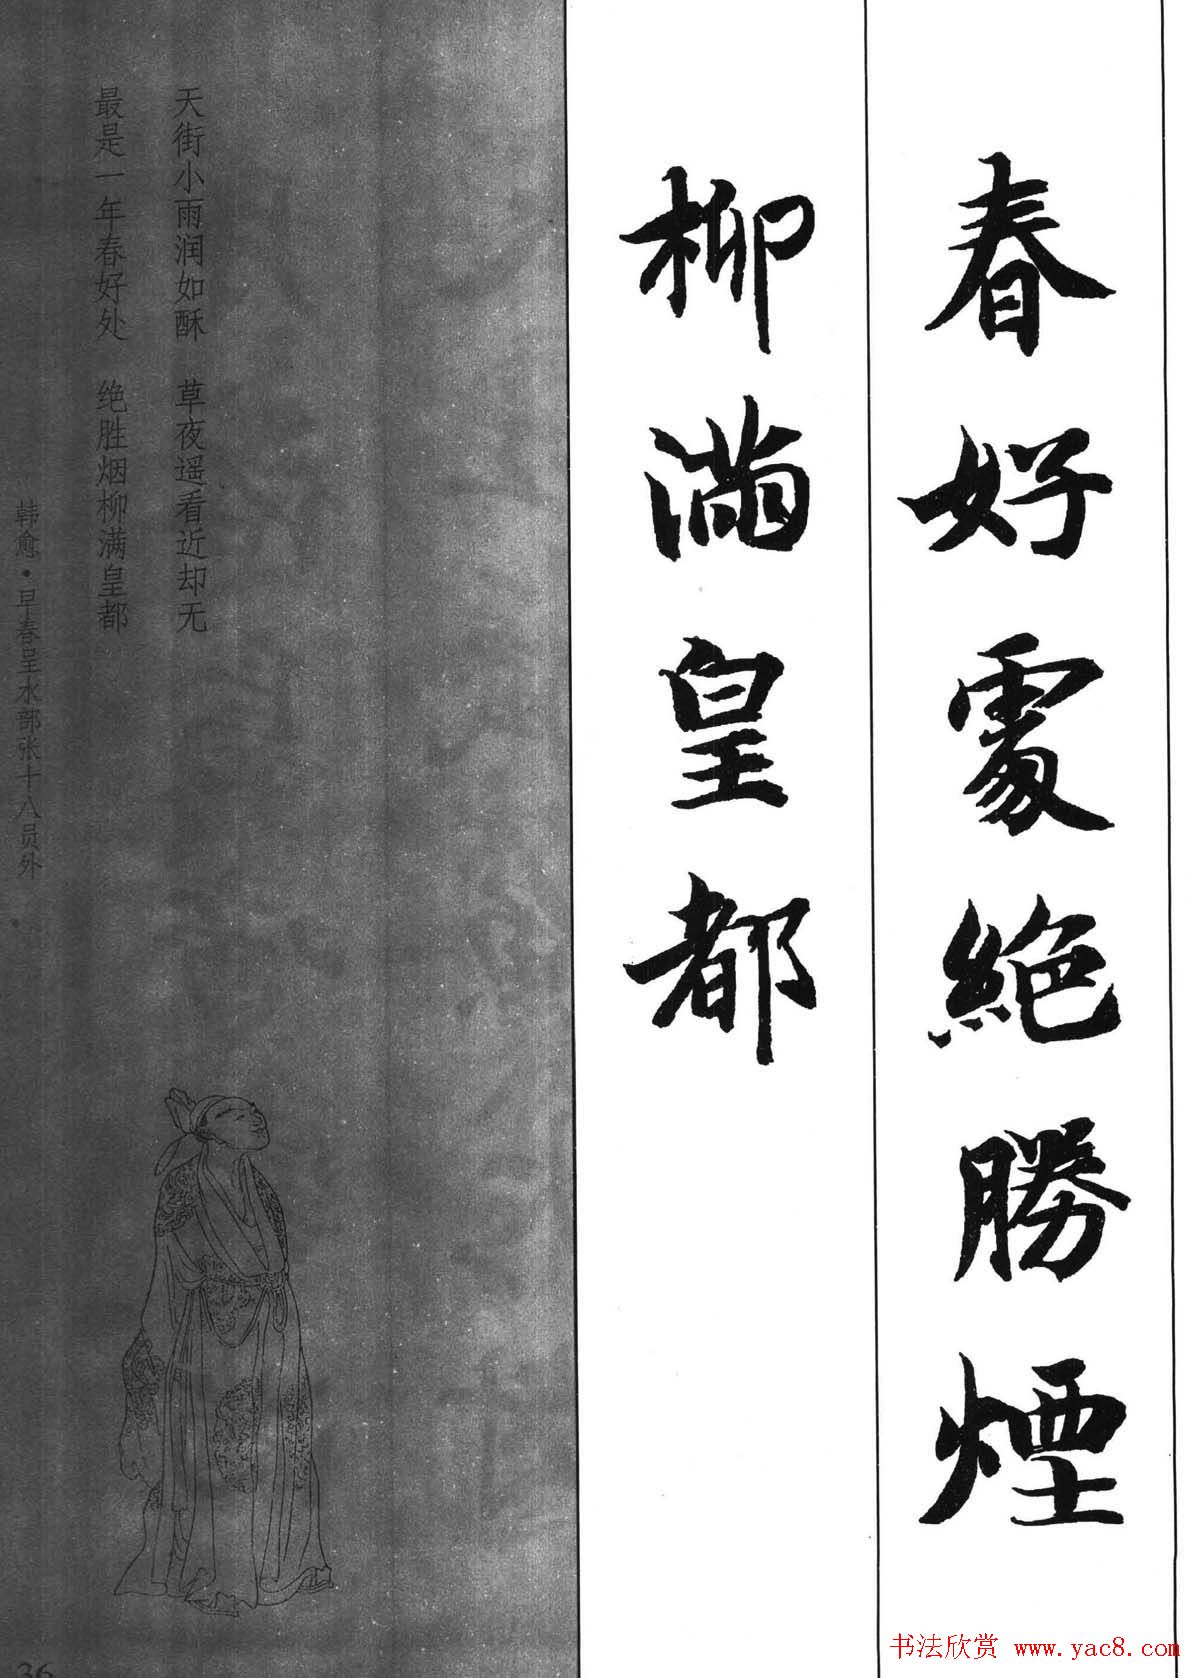 春好處絕勝煙
柳滿皇都
天街小雨润如酥 草夜遥看近却无
最是一年春好处 绝胜烟柳满皇都
韩愈·早春呈水部张十八员外
36
书法欣赏 www.yac8.com